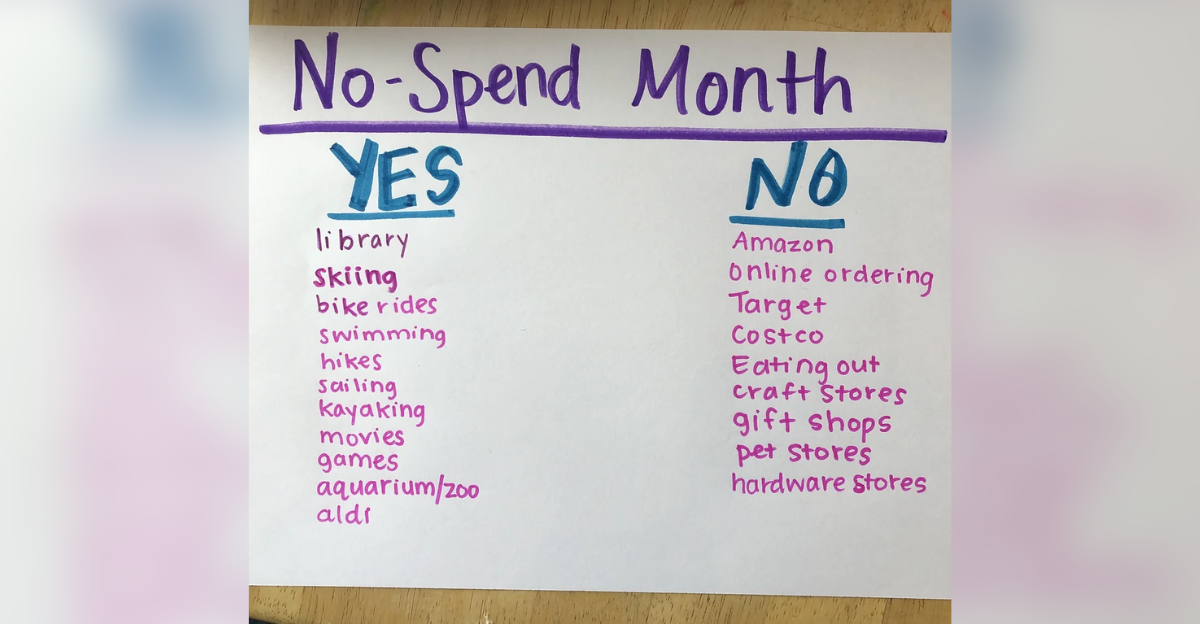 No-Spend Month
YES
library
skiing
bike rides
swimming
hikes
sailing
kayaking
movies
games
aquarium/zoo
aldi
NO
Amazon
online ordering
Target
Costco
Eating out
craft stores
gift shops
pet stores
hardware stores